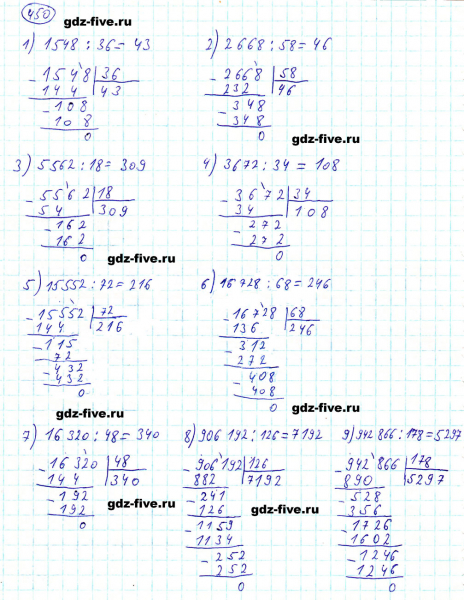 450
gdz-five.ru
1) 1548 : 36 = 43
2) 2668 : 58 = 46
- 1548 | 36
144 | 43
- 108
108
0
- 2668 | 58
232 | 46
- 348
348
0
gdz-five.ru
3) 5562 : 18 = 309
4) 3672 : 34 = 108
- 5562 | 18
54 | 309
- 162
162
0
- 3672 | 34
34 | 108
- 272
272
0
gdz-five.ru
5) 15552 : 72 = 216
6) 16728 : 68 = 246
- 15552 | 72
144 | 216
- 115
72
- 432
432
0
- 16728 | 68
136 | 246
- 312
272
- 408
408
0
gdz-five.ru
7) 16320 : 48 = 340
8) 906192 : 126 = 7192
9) 942866 : 178 = 5297
- 16320 | 48
144 | 340
- 192
192
0
- 906192 | 126
882 | 7192
- 241
126
- 1159
1134
- 252
252
0
- 942866 | 178
890 | 5297
- 528
356
- 1726
1602
- 1246
1246
0
gdz-five.ru
gdz-five.ru